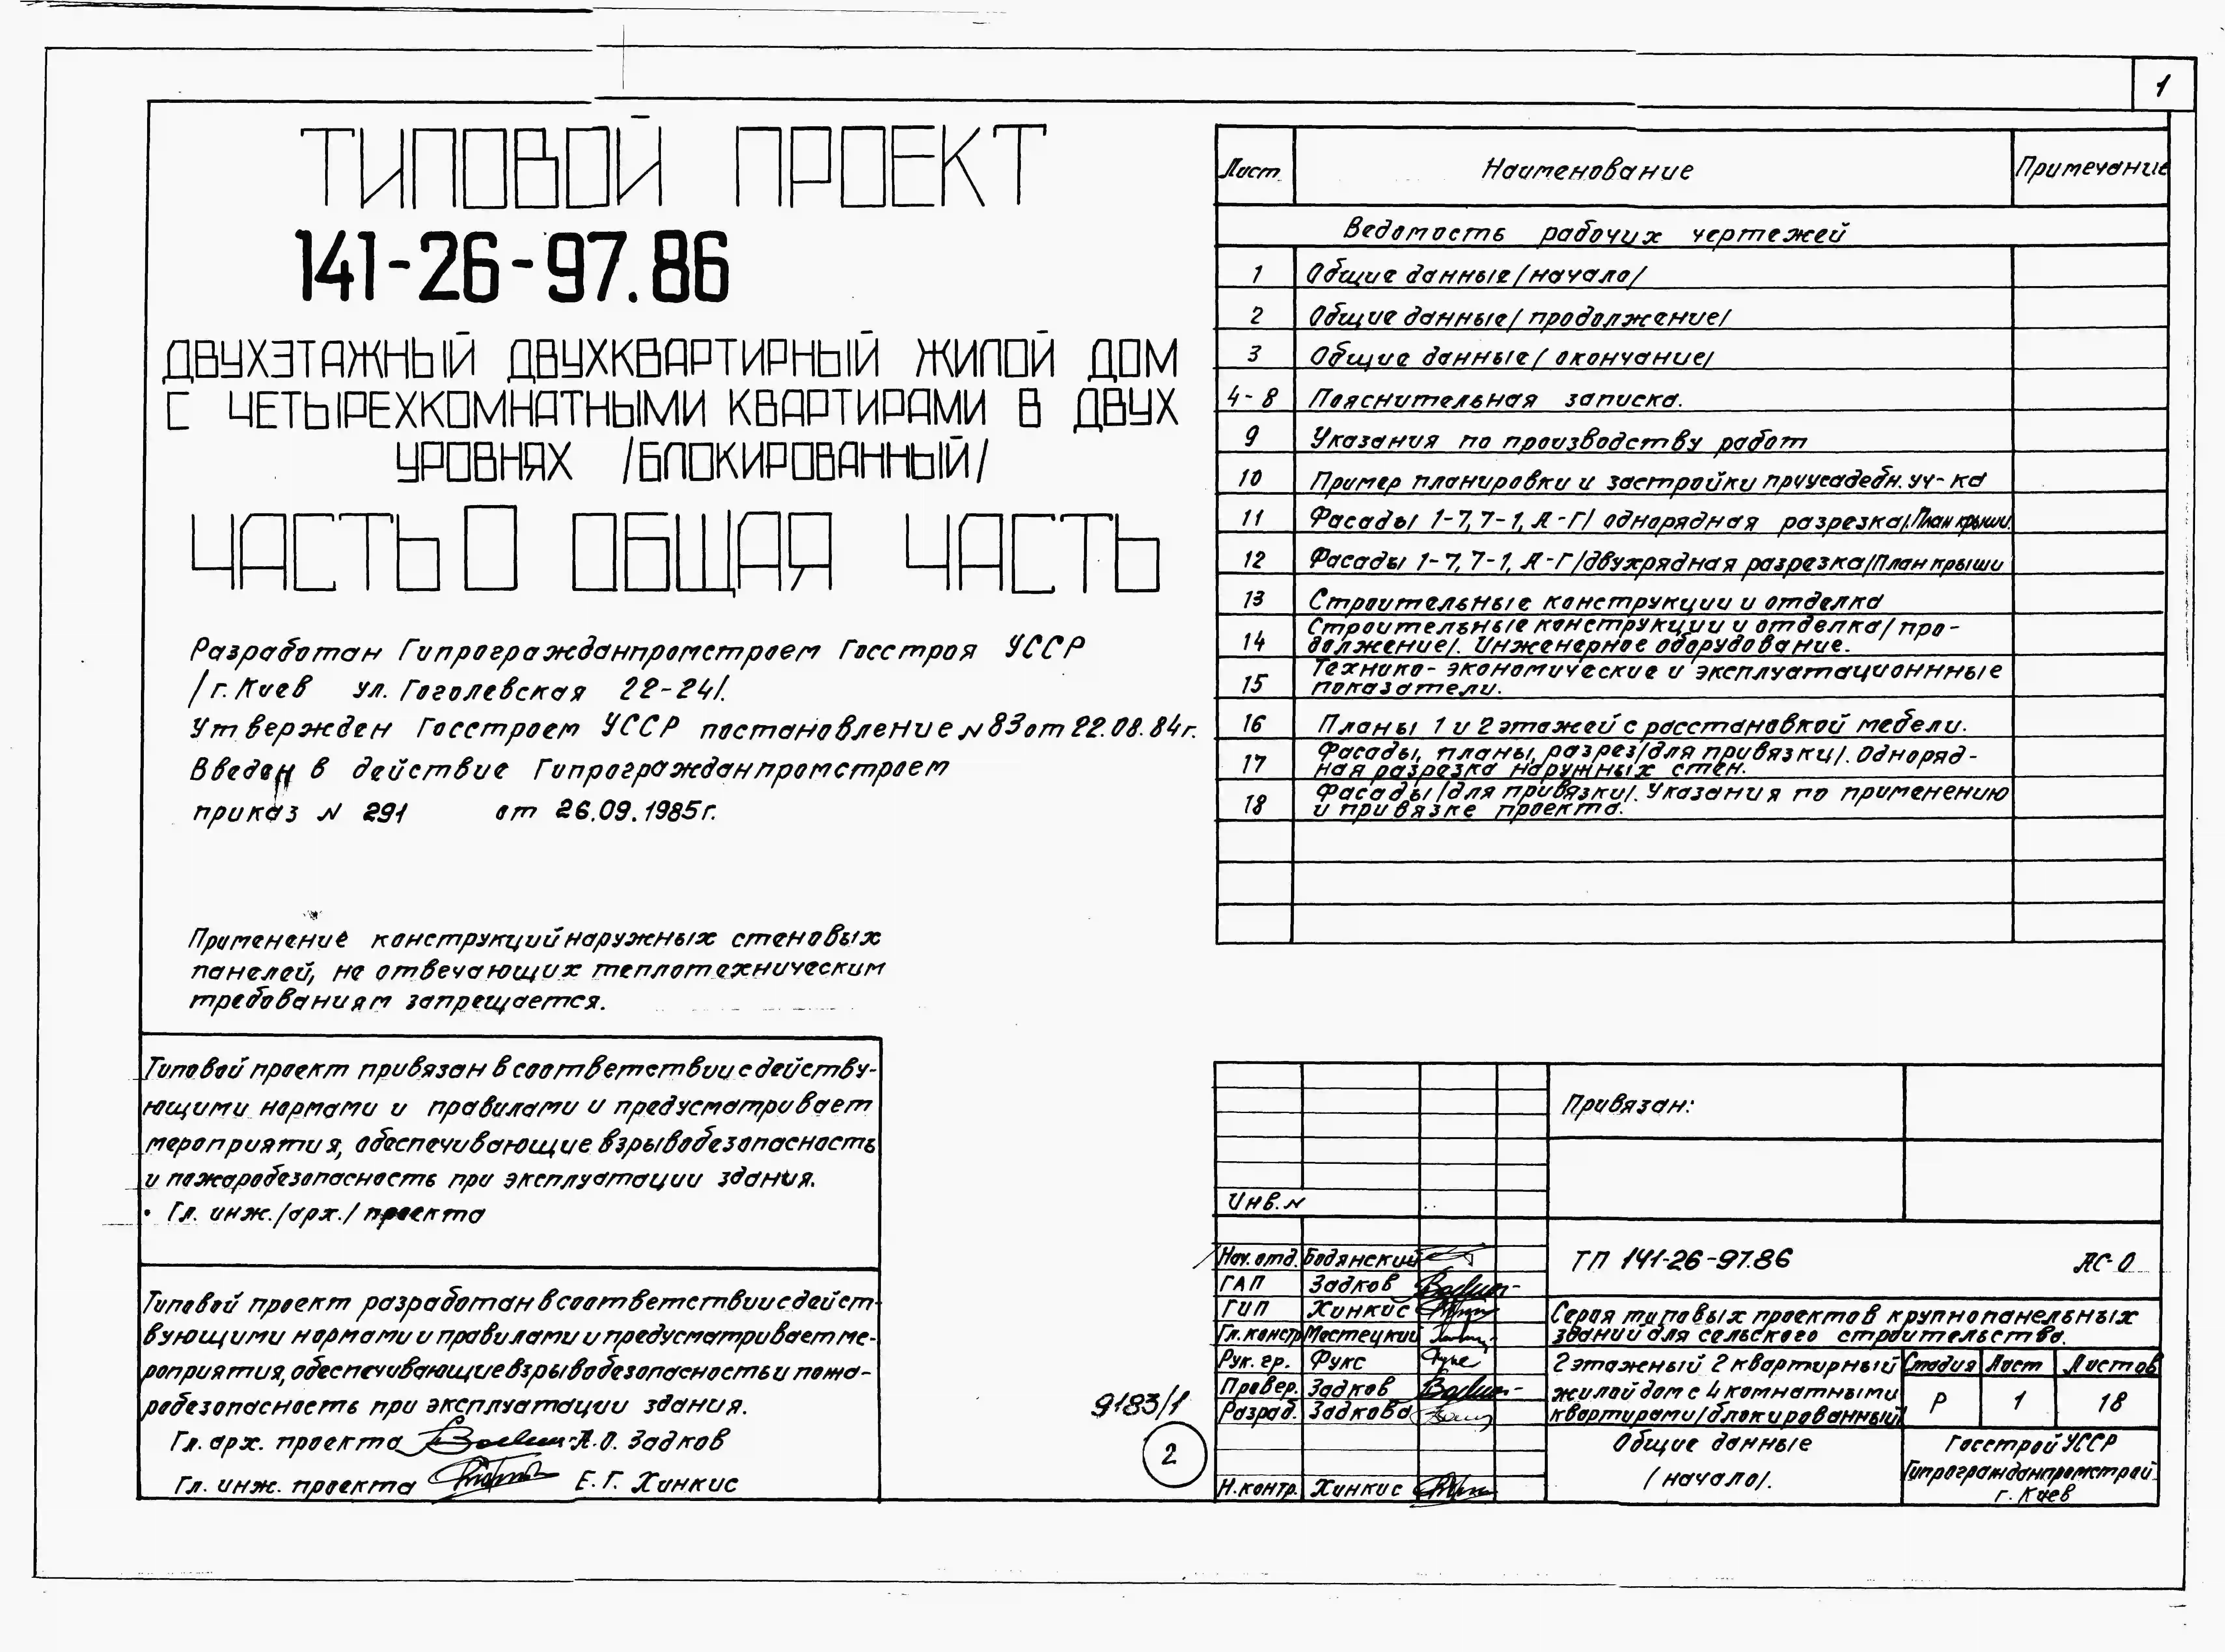 1
ТИПОВОЙ ПРОЕКТ
141-26-97.86
ДВУХЭТАЖНЫЙ ДВУХКВАРТИРНЫЙ ЖИЛОЙ ДОМ
С ЧЕТЫРЕХКОМНАТНЫМИ КВАРТИРАМИ В ДВУХ
УРОВНЯХ /БЛОКИРОВАННЫЙ/
ЧАСТЬ 0 ОБЩАЯ ЧАСТЬ
Разработан Гипрогражданпромстроем Госстроя УССР
/г. Киев ул. Гоголевская 22-24/.
Утвержден Госстроем УССР постановление N 83 от 22.08.84г.
Введен в действие Гипрогражданпромстроем
приказ N 291 от 26.09.1985г.
Применение конструкций наружных стеновых
панелей, не отвечающих теплотехническим
требованиям запрещается.
Типовой проект привязан в соответствии с действу-
ющими нормами и правилами и предусматривает
мероприятия, обеспечивающие взрывобезопасность
и пожаробезопасность при эксплуатации здания.
Гл. инж. /арх./ проекта
Типовой проект разработан в соответствии с дейст-
вующими нормами и правилами и предусматривает ме-
роприятия, обеспечивающие взрывобезопасность и пожа-
робезопасность при эксплуатации здания.
Гл. арх. проекта А.О. Задков
Гл. инж. проекта Е.Г. Хинкис
Лист Наименование Примечание
Ведомость рабочих чертежей
1 Общие данные /начало/
2 Общие данные /продолжение/
3 Общие данные /окончание/
4-8 Пояснительная записка.
9 Указания по производству работ
10 Пример планировки и застройки приусадебн. уч-ка
11 Фасады 1-7, 7-1, А-Г/ однорядная разрезка/. План крыши.
12 Фасады 1-7, 7-1, А-Г /двухрядная разрезка/План крыши
13 Строительные конструкции и отделка
14 Строительные конструкции и отделка/ про-
должение/. Инженерное оборудование.
15 Технико-экономические и эксплуатационнные
показатели.
16 Планы 1 и 2 этажей с расстановкой мебели.
17 Фасады, планы, разрез/для привязки/. Одноряд-
ная разрезка наружных стен.
18 Фасады /для привязки/. Указания по применению
и привязке проекта.
Привязан:
Инв. N
Нач. отд. Бодянский
ГАП Задков
ГИП Хинкис
Гл. констр. Мостецкий
Рук. гр. Фукс
Провер. Задков
Разраб. Задкова
Н. контр. Хинкис
ТП 141-26-97.86 АС-0
Серия типовых проектов крупнопанельных
зданий для сельского строительства.
2 этажный 2 квартирный
жилой дом с 4 комнатными
квартирами/блокированный/
Стадия Лист Листов
Р 1 18
Общие данные
/начало/.
Госстрой УССР
Гипрогражданпромстрой
г. Киев
9183/1
2